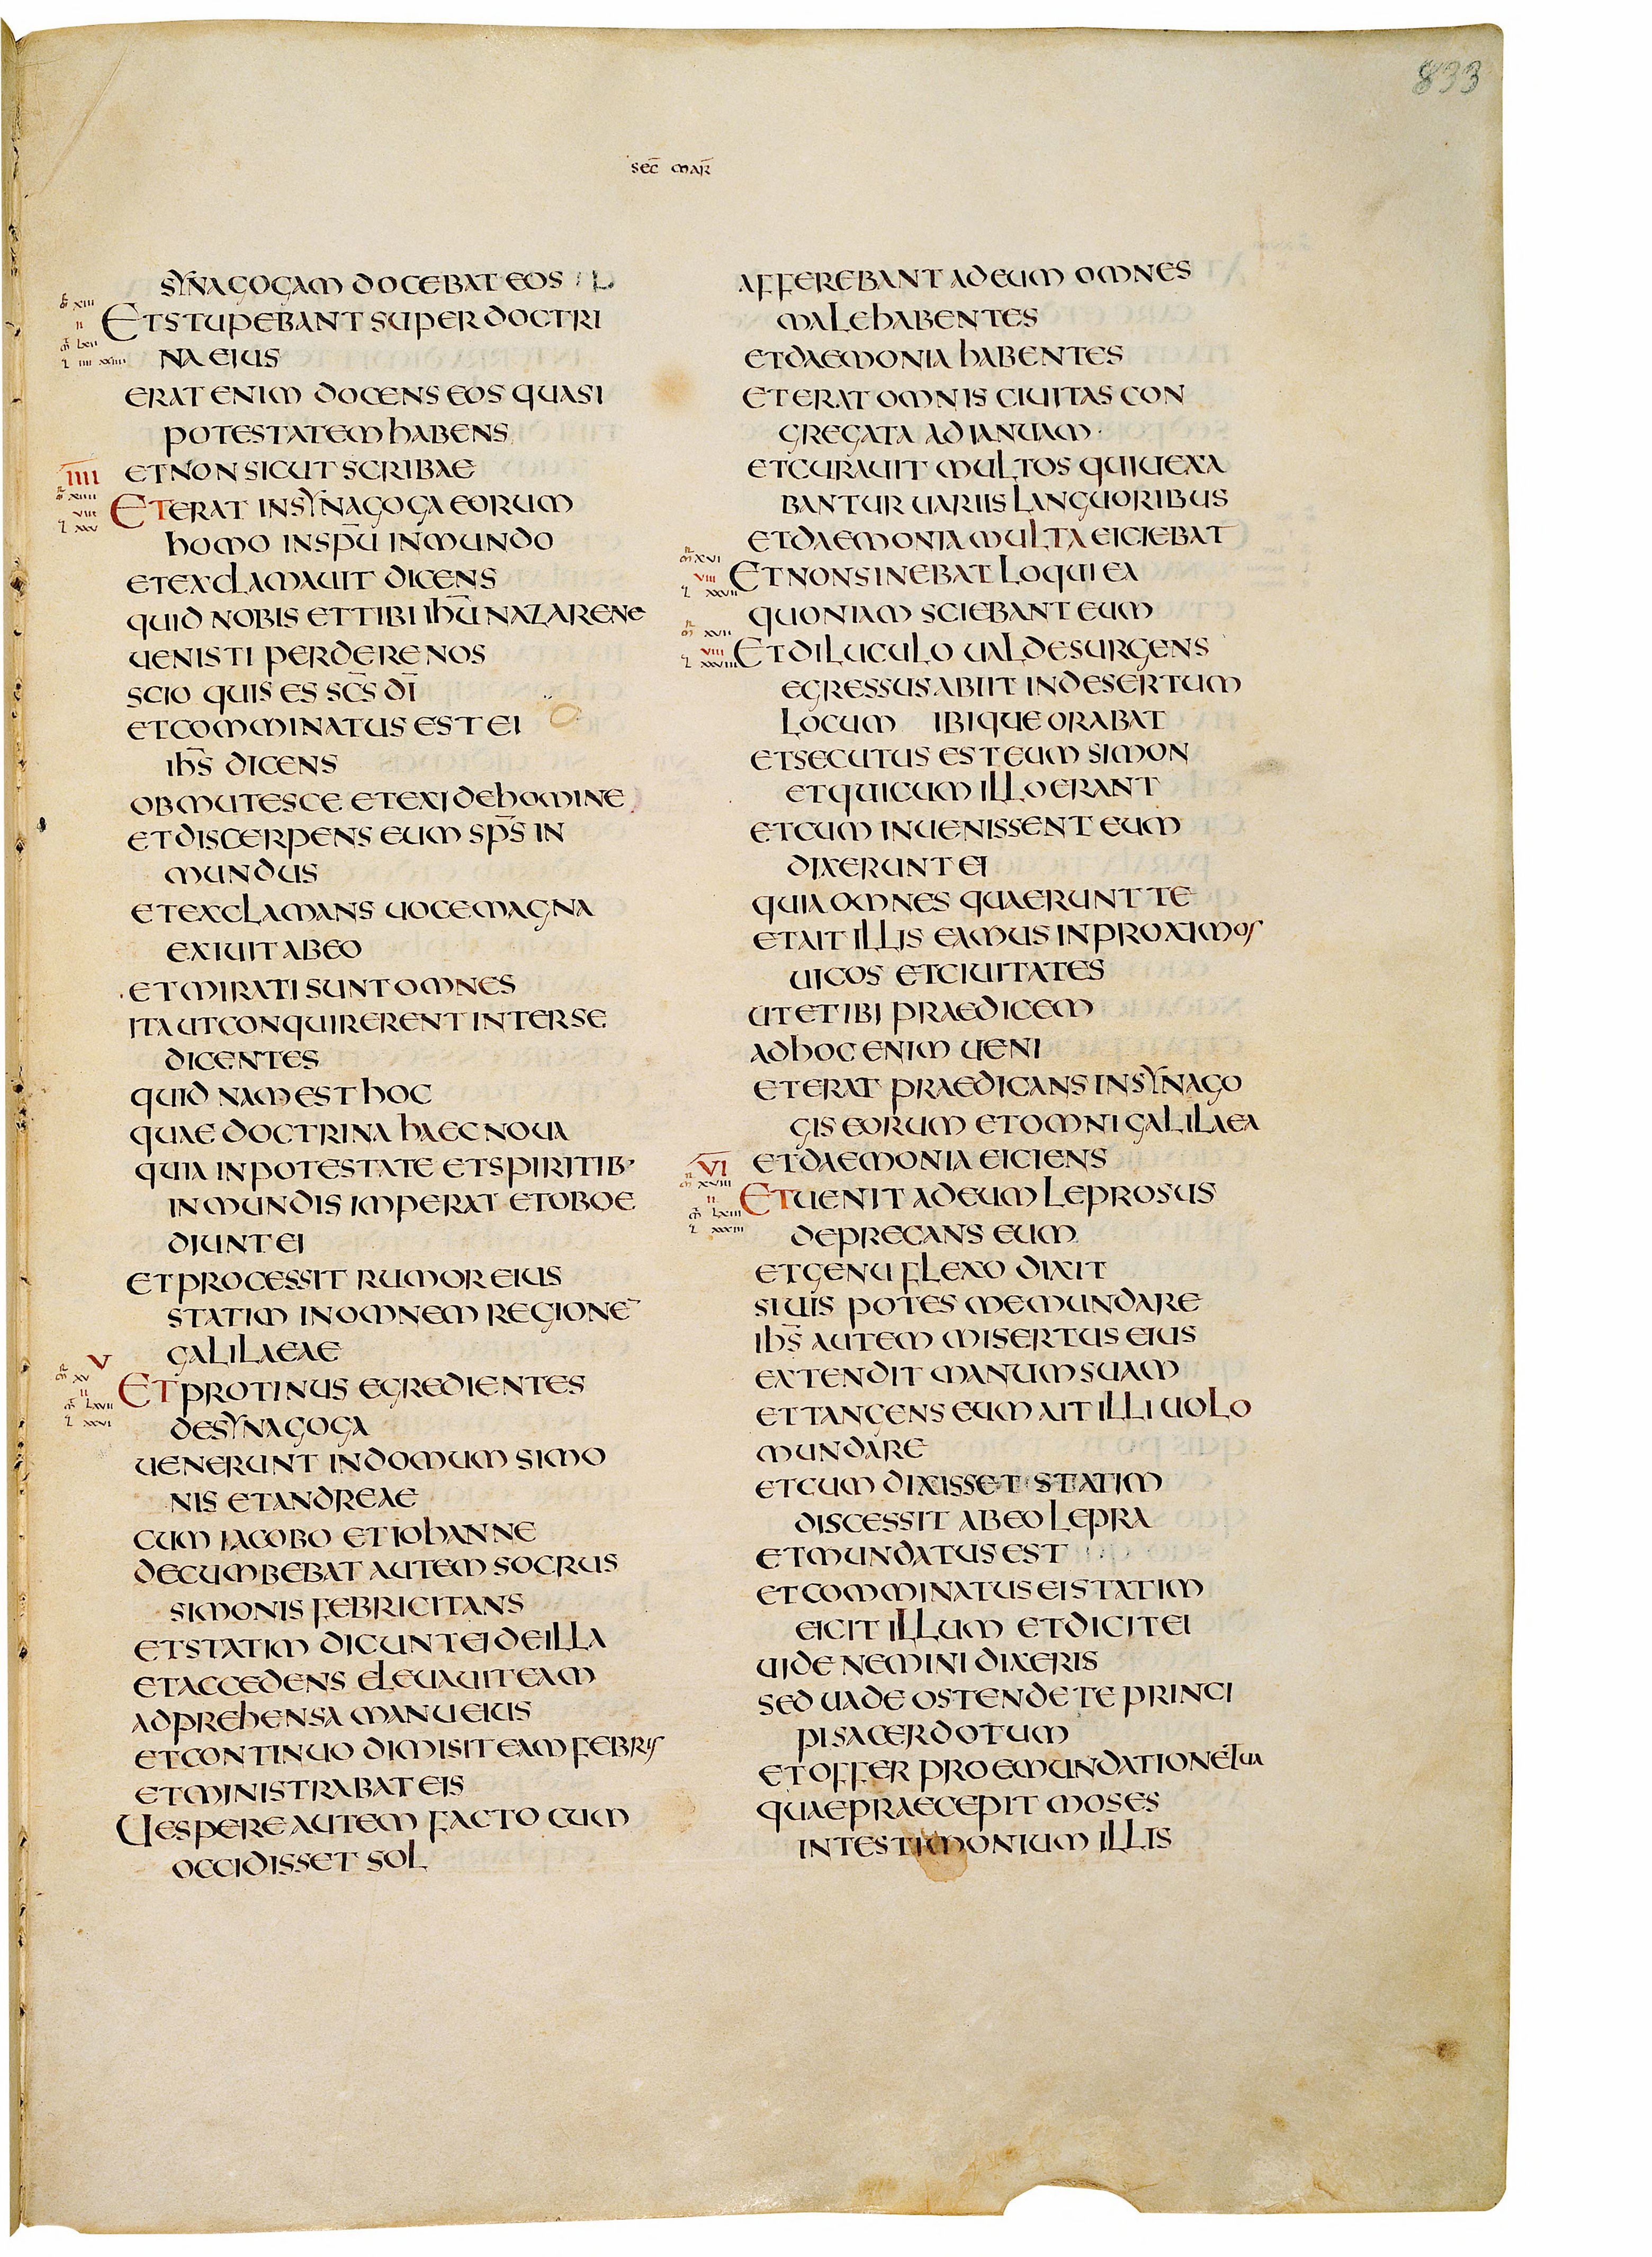 833
SEC̄ MAR̄
SYNAGOGAM DOCEBAT EOS
m̄r XIII
II
m̄ LXII
l̄ IIII XXIIII
ET STUPEBANT SUPER DOCTRI
NA EIUS
ERAT ENIM DOCENS EOS QUASI
POTESTATEM HABENS
IIII
ET NON SICUT SCRIBAE
XIIII
VIII
l̄ XXV
ET ERAT IN SYNAGOGA EORUM
HOMO IN SPŪ INMUNDO
ET EXCLAMAUIT DICENS
QUID NOBIS ET TIBI IHŪ NAZARENE
UENISTI PERDERE NOS
SCIO QUIS ES SC̄S DĪ
ET COMMINATUS EST EI
IHS̄ DICENS
OBMUTESCE ET EXI DE HOMINE
ET DISCERPENS EUM SPS̄ IN
MUNDUS
ET EXCLAMANS UOCE MAGNA
EXIUIT AB EO
ET MIRATI SUNT OMNES
ITA UT CONQUIRERENT INTER SE
DICENTES
QUID NAM EST HOC
QUAE DOCTRINA HAEC NOUA
QUIA IN POTESTATE ET SPIRITIB·
INMUNDIS IMPERAT ET OBOE
DIUNT EI
ET PROCESSIT RUMOR EIUS
STATIM IN OMNEM REGIONĒ
GALILAEAE
V
XV
II
m̄ LXVII
l̄ XXVI
ET PROTINUS EGREDIENTES
DE SYNAGOGA
UENERUNT IN DOMUM SIMO
NIS ET ANDREAE
CUM IACOBO ET IOHANNE
DECUMBEBAT AUTEM SOCRUS
SIMONIS FEBRICITANS
ET STATIM DICUNT EI DE ILLA
ET ACCEDENS ELEUAUIT EAM
ADPREHENSA MANU EIUS
ET CONTINUO DIMISIT EAM FEBRIS
ET MINISTRABAT EIS
UESPERE AUTEM FACTO CUM
OCCIDISSET SOL
AFFEREBANT AD EUM OMNES
MALE HABENTES
ET DAEMONIA HABENTES
ET ERAT OMNIS CIUITAS CON
GREGATA AD IANUAM
ET CURAUIT MULTOS QUI UEXA
BANTUR UARIIS LANGUORIBUS
ET DAEMONIA MULTA EICIEBAT
XVI
VIII
l̄ XXVII
ET NON SINEBAT LOQUI EA
QUONIAM SCIEBANT EUM
XVII
VIII
l̄ XXVIII
ET DILUCULO UALDE SURGENS
EGRESSUS ABIIT IN DESERTUM
LOCUM IBIQUE ORABAT
ET SECUTUS EST EUM SIMON
ET QUI CUM ILLO ERANT
ET CUM INUENISSENT EUM
DIXERUNT EI
QUIA OMNES QUAERUNT TE
ET AIT ILLIS EAMUS IN PROXIMOS
UICOS ET CIUITATES
UT ET IBI PRAEDICEM
AD HOC ENIM UENI
ET ERAT PRAEDICANS IN SYNAGO
GIS EORUM ET OMNI GALILAEA
VI
ET DAEMONIA EICIENS
XVIII
II
m̄ LXIII
l̄ XXXIII
ET UENIT AD EUM LEPROSUS
DEPRECANS EUM
ET GENU FLEXO DIXIT
SI UIS POTES ME MUNDARE
IHS̄ AUTEM MISERTUS EIUS
EXTENDIT MANUM SUAM
ET TANGENS EUM AIT ILLI UOLO
MUNDARE
ET CUM DIXISSET STATIM
DISCESSIT AB EO LEPRA
ET MUNDATUS EST
ET COMMINATUS EI STATIM
EICIT ILLUM ET DICIT EI
UIDE NEMINI DIXERIS
SED UADE OSTENDE TE PRINCI
PI SACERDOTUM
ET OFFER PRO EMUNDATIONE TUA
QUAE PRAECEPIT MOSES
IN TESTIMONIUM ILLIS